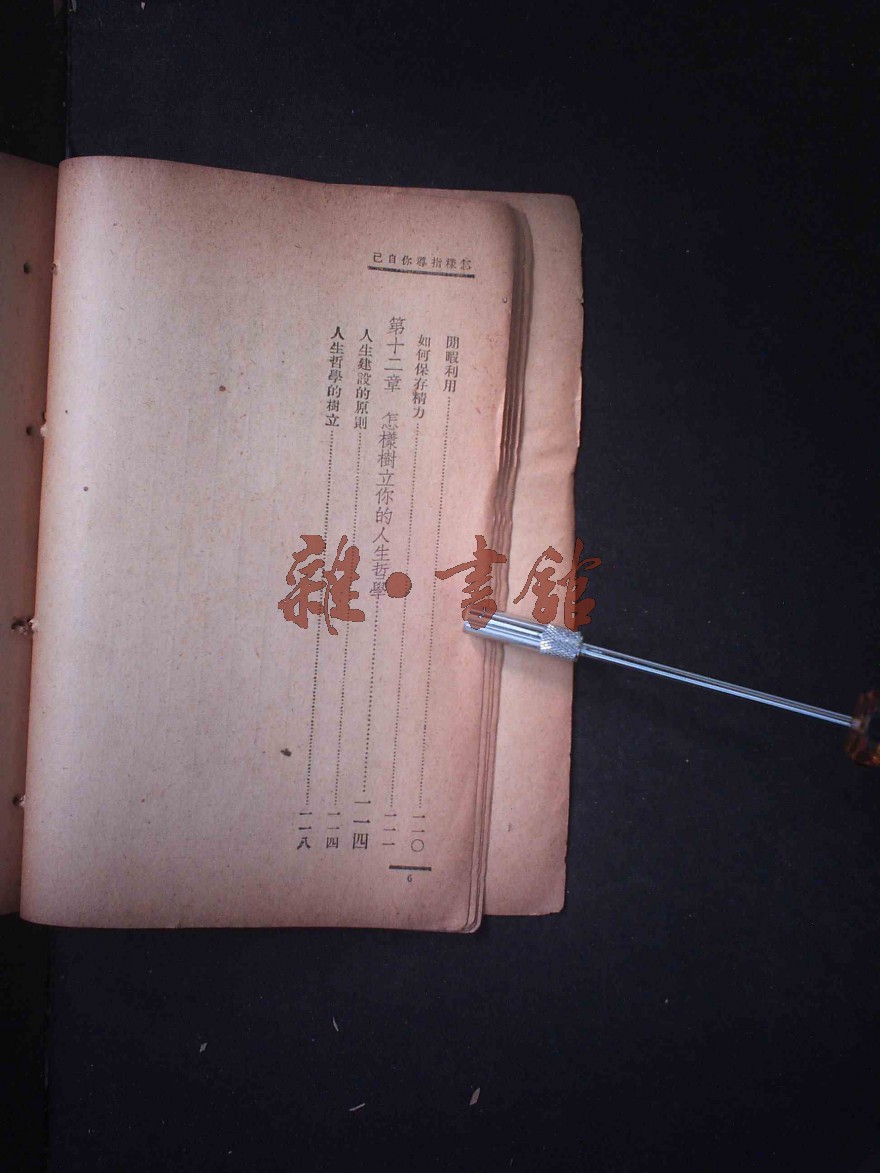 怎樣指導你自己
閒暇利用……一一〇
如何保存精力……一一一
第十二章 怎樣樹立你的人生哲學……一一四
人生建設的原則……一一四
人生哲學的樹立……一一八
6
雜·書館